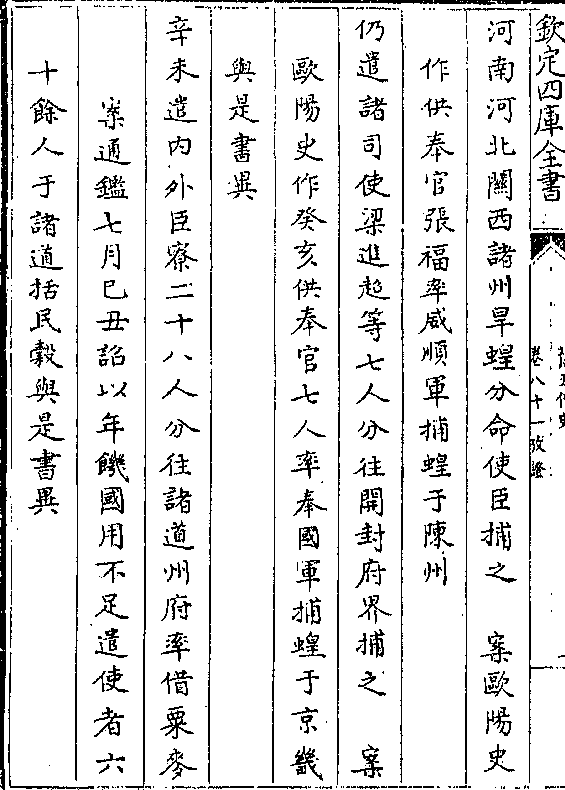 欽定四庫全書
卷八十一攷證
河南河北關西諸州旱蝗分命使臣捕之　案歐陽史
作供奉官張福率威順軍捕蝗于陳州
仍遣諸司使梁進超等七人分往開封府界捕之　案
歐陽史作癸亥供奉官七人率奉國軍捕蝗于京畿
與是書異
辛未遣内外臣寮二十八人分往諸道州府率借粟麥
案通鑑七月己丑詔以年饑國用不足遣使者六
十餘人于諸道括民穀與是書異